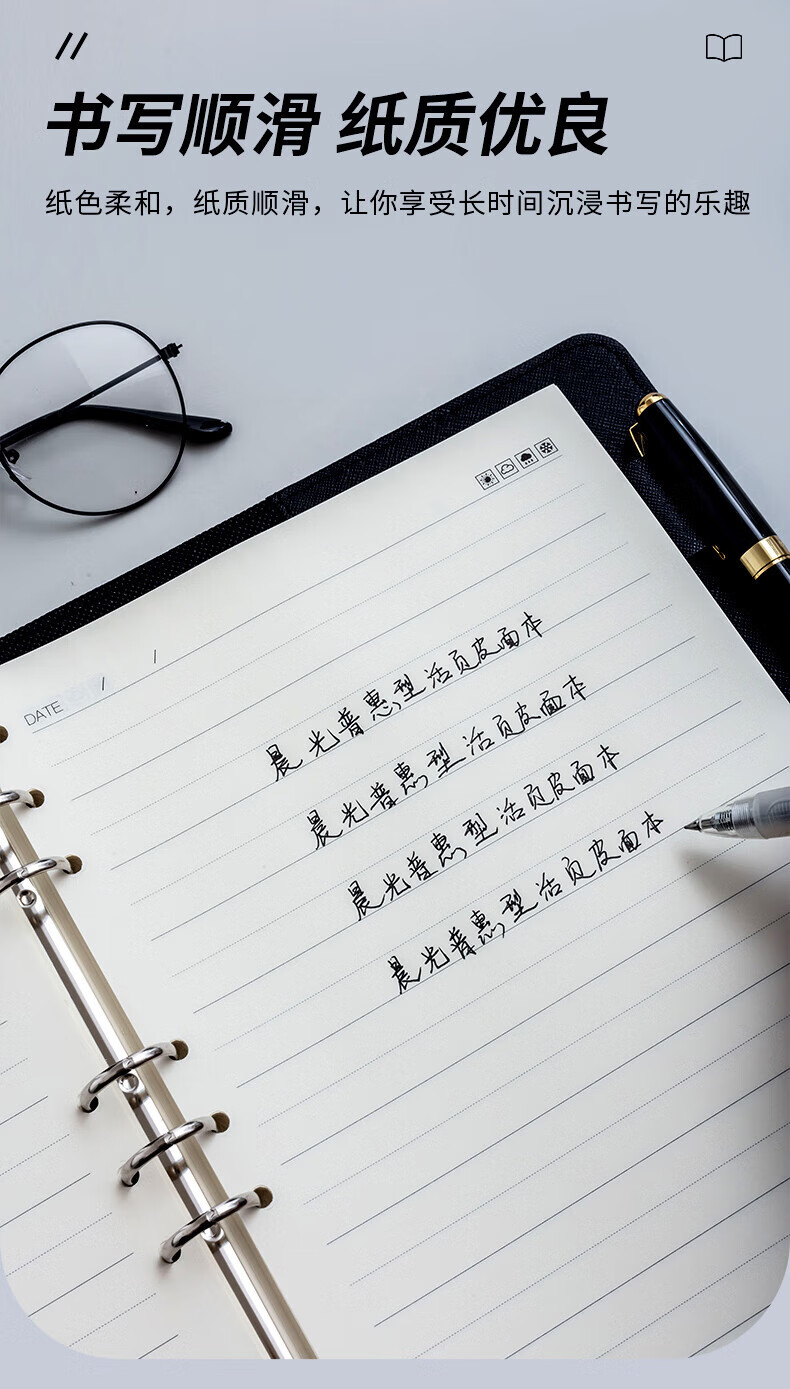 书写顺滑 纸质优良
纸色柔和，纸质顺滑，让你享受长时间沉浸书写的乐趣
DATE / /
晨光普惠型活页皮面本
晨光普惠型活页皮面本
晨光普惠型活页皮面本
晨光普惠型活页皮面本